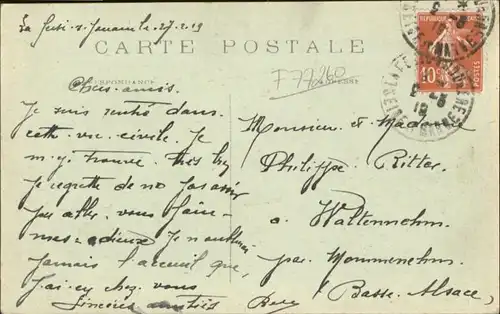 La Ferté-s-Jouarre le 27-2-19
CARTE POSTALE
CORRESPONDANCE
F 77260
RÉPUBLIQUE FRANÇAISE
10
POSTES
Chers amis.
Je suis rentré dans
cette vie civile. Je
m'y trouve très bien
Je regrette de ne pas avoir
pu aller vous faire
mes adieux Je n'oublierai
Jamais l'acceuil que
j'ai eu chez vous
Sincères amitiés
Monsieur et Madame
Philippe Ritter
a Waltennehm
par Mommenehm
Basse-Alsace